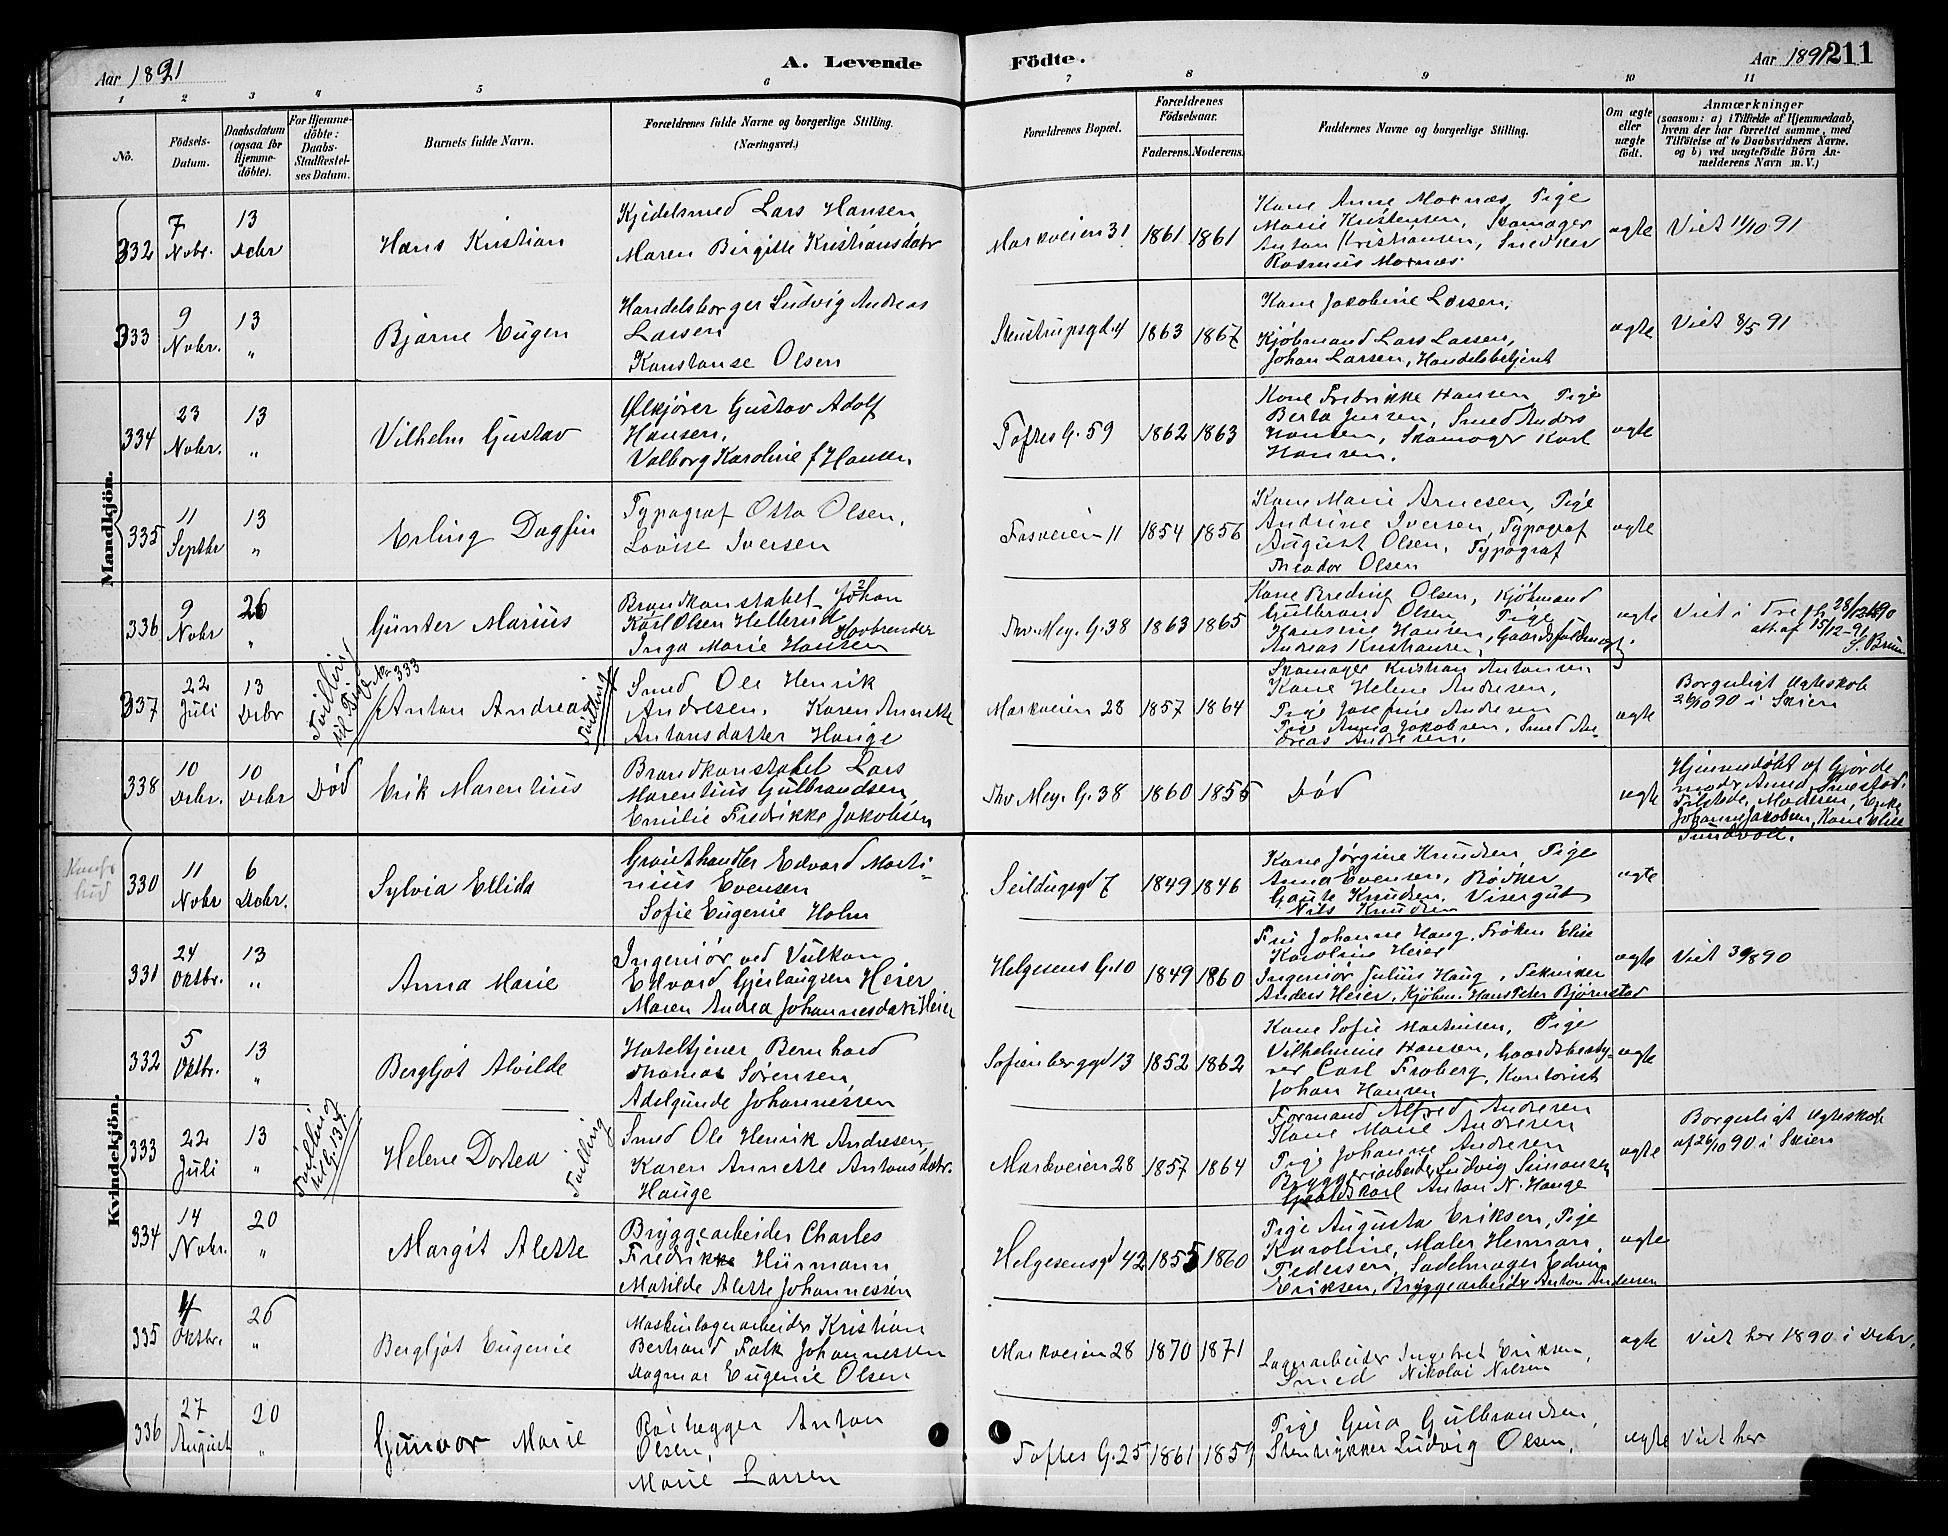 Aar 1891
A. Levende
Födte.
Aar 1891
211
1 2 3 4 5 6 7 8 9 10 11
No.
Födsels-Datum.
Daabsdatum (ogsaa for Hjemmedöbte).
For Hjemmedöbte: Daabs-Stadfestelses Datum.
Barnets fulde Navn.
Forældrenes fulde Navne og borgerlige Stilling.
(Næringsvei.)
Forældrenes Bopæl.
Forældrenes Födselsaar.
Faderens. Moderens.
Faddernes Navne og borgerlige Stilling.
Om ægte eller uægte födt.
Anmærkninger
(saasom: a) i Tilfælde af Hjemmedaab, hvem der har forrettet samme, med Tilföielse af to Daabsvidners Navne. og b) ved uægtefödte Börn Anmelderens Navn m.V.)
Mandkjön.
332
7 Novbr.
13 Debr
Hans Kristian
Kjedelsmed Lars Hansen
Maren Birgitte Kristiansdatr
Markveien 31
1861 1861
Kone Anne Moxnæs, Pige
Marie Kristensen, Skomager
Anton Kristiansen, Snedker
Rasmus Moxnæs.
ægte
Viet 11/10 91
333
9 Novbr.
13 "
Bjarne Eugen
Handelsborger Ludvig Andreas
Larsen
Konstanse Olsen
Stenstrupsgd. 4
1863 1867
Kone Jakobine Larsen,
Kjøbmand Lars Larsen,
Johan Larsen, Handelsbetjent
ægte
Viet 8/5 91
334
23 Novbr.
13 "
Vilhelm Gustav
Ølkjører Gustav Adolf
Hansen,
Valborg Karoline f Hansen
Toftes G. 59
1862 1863
Kone Fredrikke Hansen, Pige
Berta Jensen, Smed Anders
Hansen, Skomager Karl
Hansen.
ægte
335
11 Septbr
13 "
Erling Dagfin
Typograf Otto Olsen,
Lovise Iversen
Fosveien 11
1854 1856
Kone Marie Arnesen, Pige
Andrine Iversen, Typograf
August Olsen, Typograf
Theodor Olsen
ægte
336
9 Novbr
26 "
Günter Marius
Brandkonstabel Johan
Karl Olsen Hellerud
Inga Marie Hansen
Thv. Mey. G. 38
1863 1865
Olsen, Kjøbmand
Gulbrand Olsen, Pige
Hansine Hansen, Gaardsfuldmægt.
Andreas Kristiansen
ægte
Viet i
att. af 15/12-91
337
22 Juli
13 Debr
Tvilling til Pige No 333
Anton Andreas
Tvilling
Smed Ole Henrik
Andresen, Karen Annette
Antonsdatter Hauge
Markveien 28
1857 1864
Skomager Kristian Antonsen
Kone Helene Andresen,
Pige Josefine Andresen
Pige Anna Jakobsen, Smed An-
dreas Andresen.
ægte
Borgerligt Ægteskab
26/10 90 i Skien
338
10 Debr.
10 Debr
Død
Erik Marentius
Brandkonstabel Lars
Marentius Gulbrandsen,
Emilie Fredrikke Jakobsen
Thv. Mey. G. 38
1860 1855
Død
ægte
Hjemmedøbt af Gjorde
moder Anna Smestad.
Tilstede, Moderen, Enke
Johanne Jakobsen, Kone Elise
Sundvoll.
Kvindekjön.
330
11 Novbr
6 Debr.
Sylvia Ellida
Grønthandler Edvard Marti-
nius Evensen
Sofie Eugenie Holm
Seildugsgd 7
1849 1846
Kone Jørgine Knudsen, Pige
Anna Evensen, Bødker
Gaute Knudsen, Visergut
Nils Knudsen
ægte
331
24 Oktbr.
13 "
Anna Marie
Ingeniør ved Vulkan
Edvard Gjerlaugsen Heier
Maren Andrea Johannesdatr Heier
Helgesens G. 10
1849 1860
Fru Johanne Haug, Frøken Elise
Karoline Heier
Ingeniør Julius Haug, Tekniker
Anders Heier, Kjøbm. Hans Peter Bjørnstad
ægte
332
5 Oktbr.
13 "
Bergljot Alvilde
Hoteltjener Bernhard
Thomas Sørensen,
Adelgunde Johannessen
Sofienberggd 13
1852 1862
Kone Sofie Martinsen, Pige
Vilhelmine Hansen, Gaardsbesty-
rer Carl Froberg, Kontorist
Johan Hansen
ægte
333
22 Juli
13 "
Tvilling til G. 137.
Helene Dortea
Tvilling
Smed Ole Henrik Andresen,
Karen Annette Antonsdatr.
Hauge
Markveien 28
1857 1864
Formand Alfred Andresen
Kone Marie Andresen
Pige Johanne Andresen
Bryggeriarbeider Ludvig Simonsen
Gaardskarl Anton N. Hauge
ægte
Borgerligt Ægteskab
af 26/10 90 i Skien
334
14 Novbr.
20 "
Margit Alette
Bryggearbeider Charles
Fredrik Hürmann
Matilde Alette Johannessen
Helgesensgd 42
1855 1860
Pige Augusta Eriksen, Pige
Karoline, Maler Herman
Pedersen, Sadelmager Edvin
Eriksen, Bryggearbeider Anton Andersen
ægte
335
4 Oktbr.
26 "
Bergljot Eugenie
Maskinlagerarbeider Kristian
Bertrand Falk Johannessen
Dagmar Eugenie Olsen
Markveien 28
1870 1871
Lagerarbeider Ingebret Eriksen,
Smed Nikolai Nilsen
ægte
Viet her 1890 i Debr.
336
27 August
20 "
Gunvor Marie
Rørlægger Anton
Olsen,
Marie Larsen
Toftes G. 25
1861 1859
Pige Gina Gulbrandsen,
Stentrykker Ludvig Olsen,
ægte
Viet her